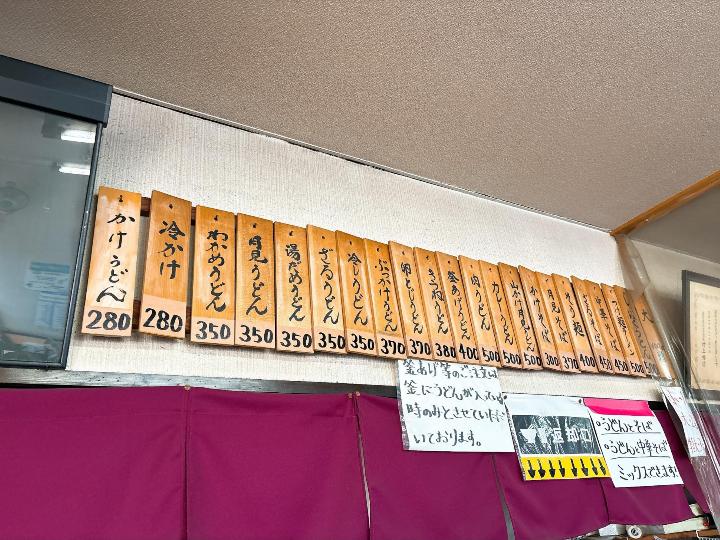 かけうどん
280
冷かけ
280
わかめうどん
350
月見うどん
350
湯だめうどん
350
ざるうどん
350
冷しうどん
350
ぶっかけうどん
370
卵とじうどん
370
きつねうどん
380
釜あげうどん
400
肉うどん
500
カレーうどん
500
山かけうどん
500
かけそば
300
月見そば
370
ざるそば
400
中華そば
450
450
500
釜あげ等のご注文は
釜にうどんが入っている
時のみとさせていただ
いております。
返却口
•うどんとそば
•うどんと中華そば
ミックスできます!